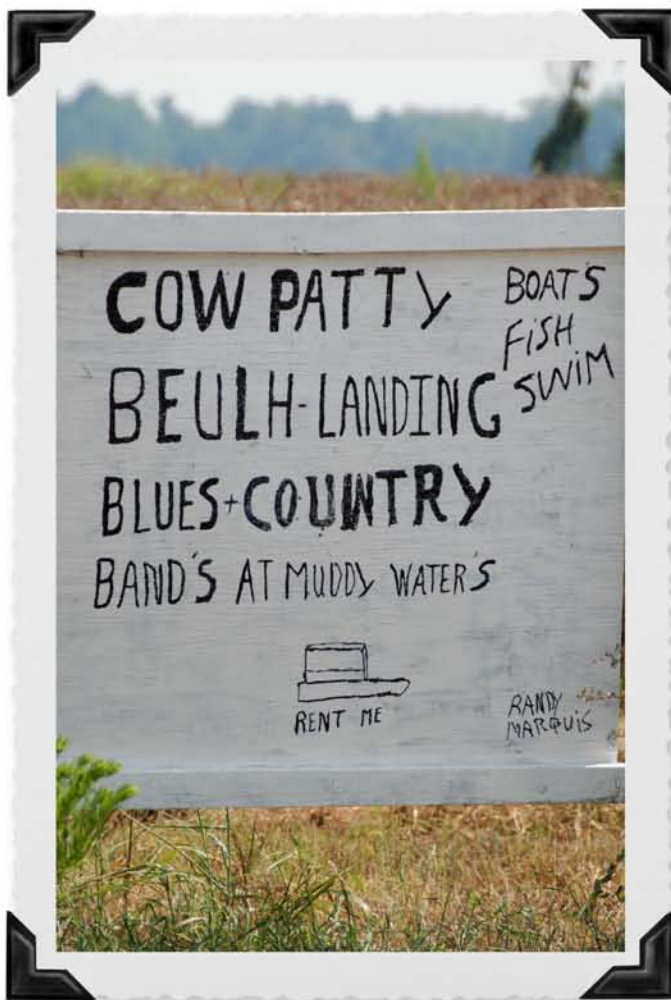 COW PATTY
BEULH-LANDING
BLUES+COUNTRY
BAND'S AT MUDDY WATER'S
BOATS
FiSH
SWiM
RENT ME
RANDY
MARQUiS